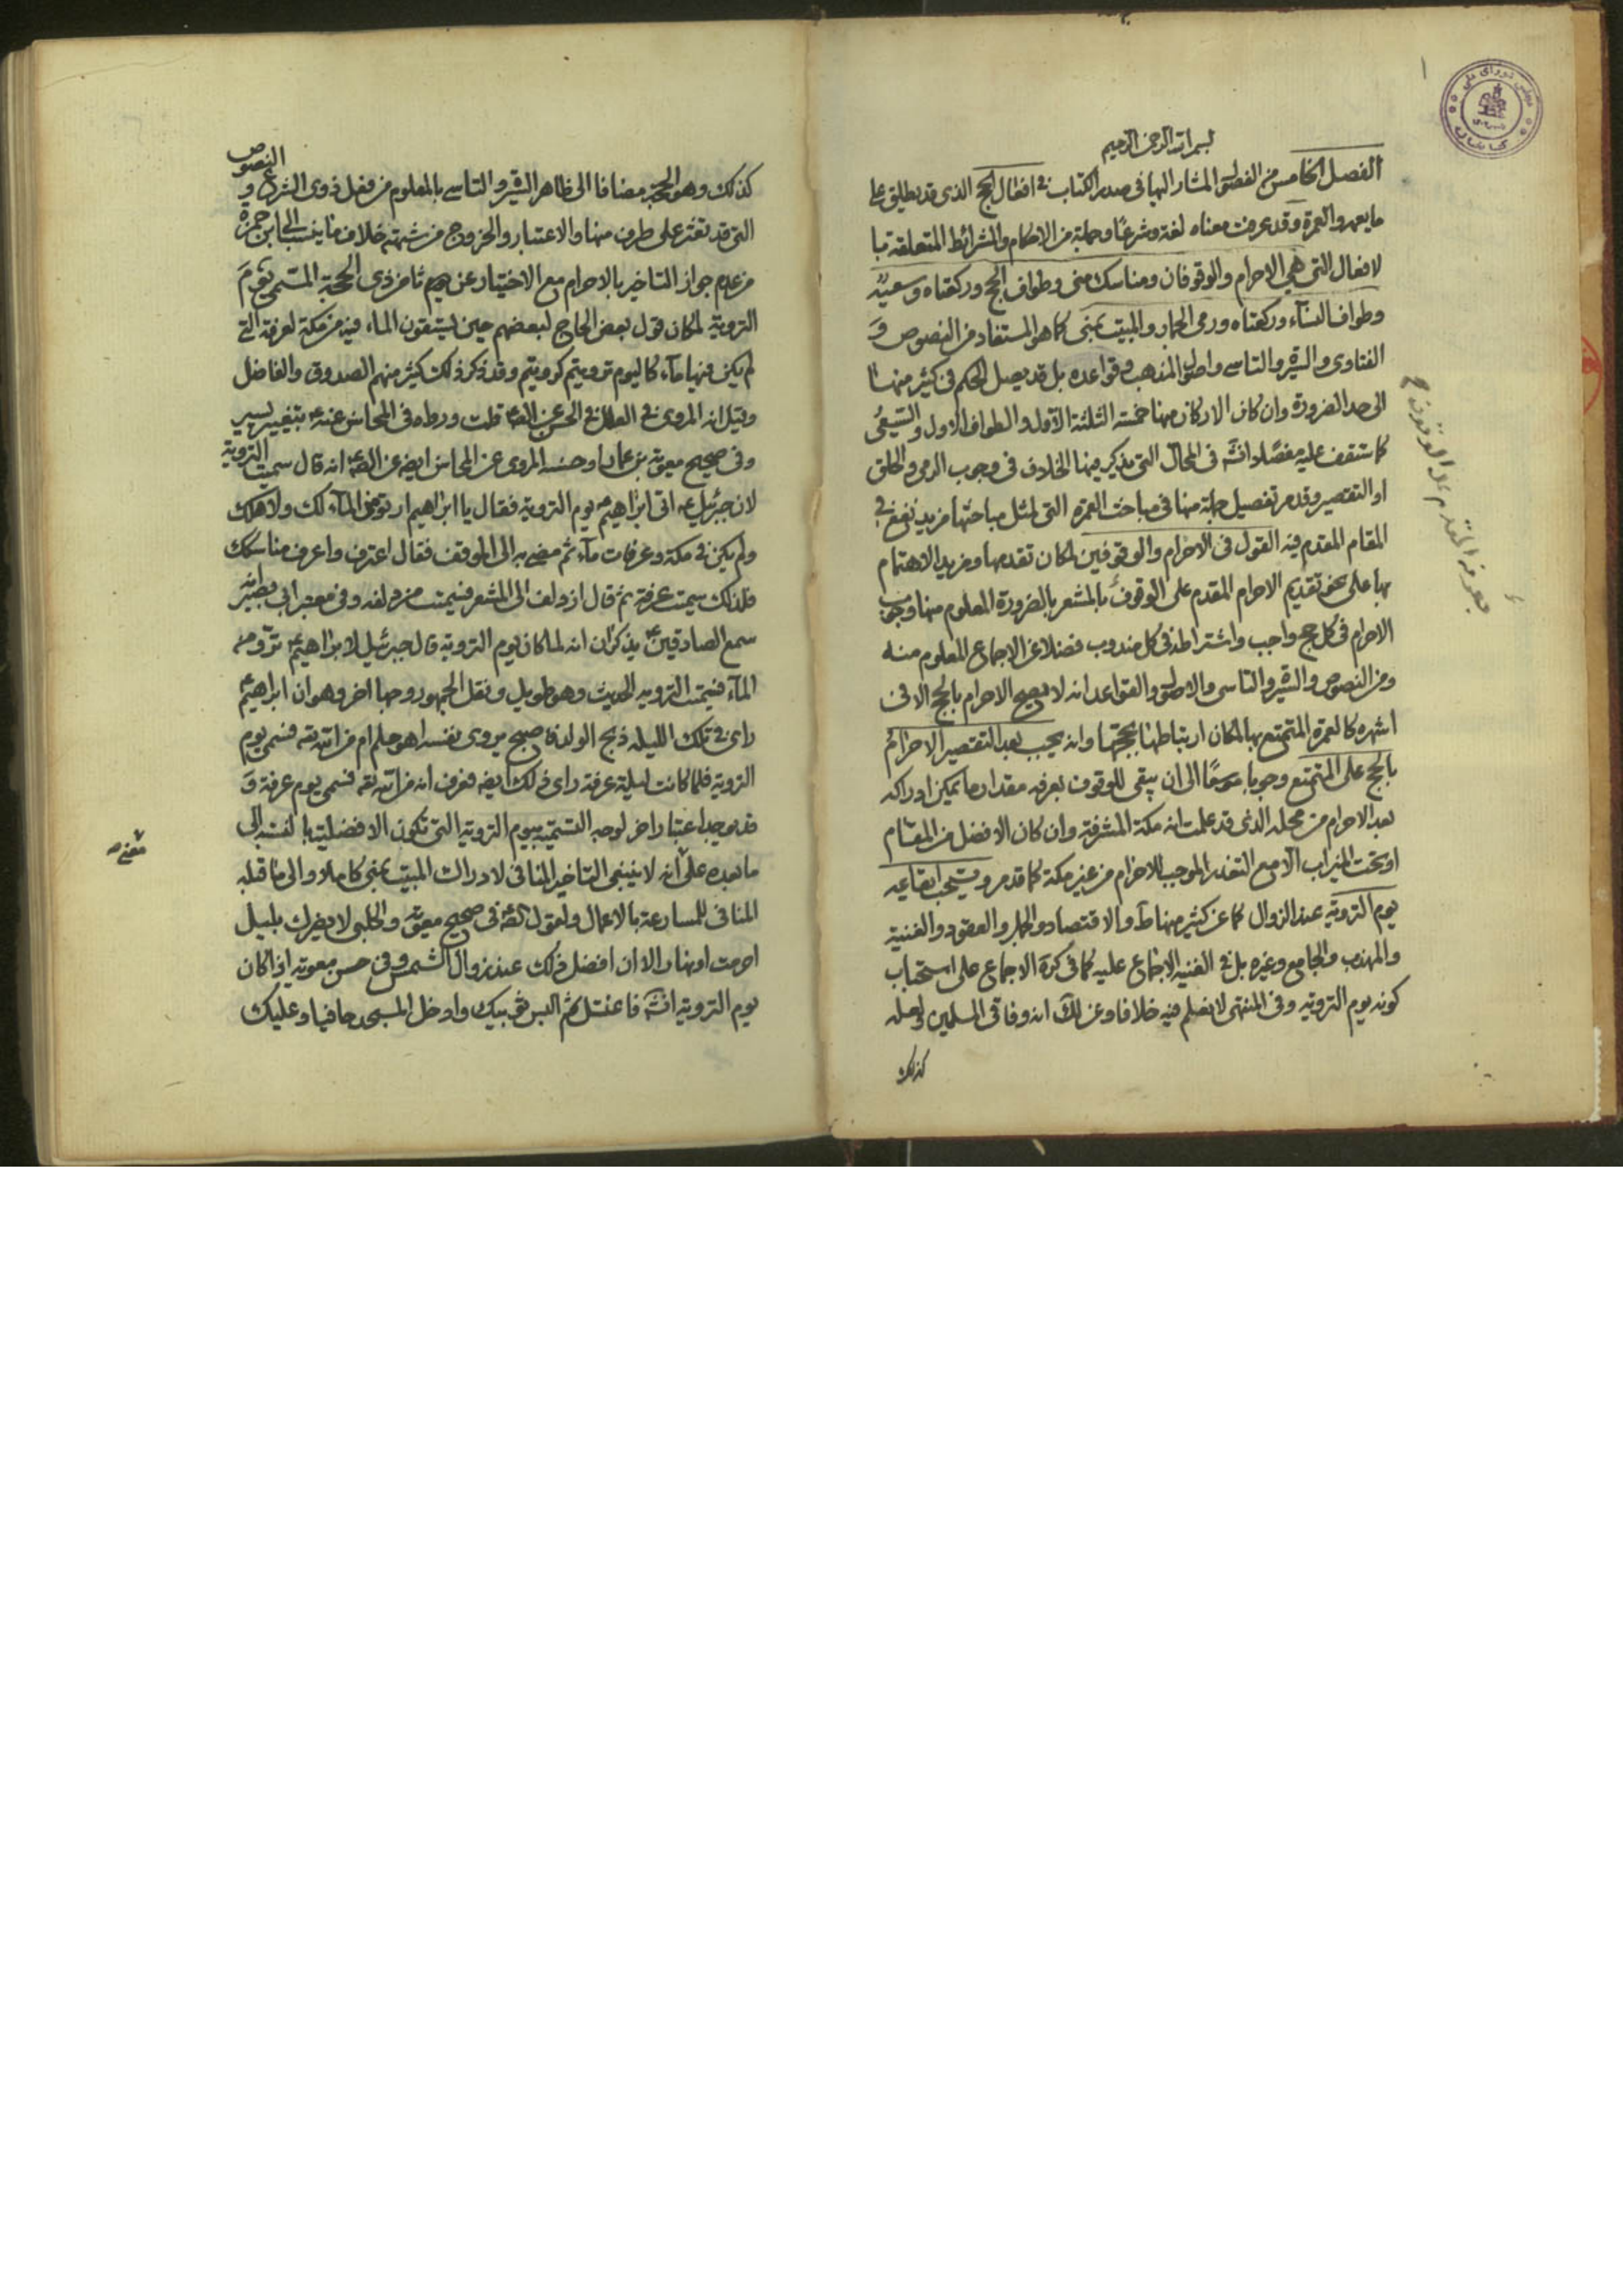 بسم الله الرحمن الرحيم
الفصل الخامس من الفصول المشار اليها في صدر الكتاب في افعال الحج الذي قد يطلق على
ما يعم والعمرة وقد عرفت معناه لغة وشرعا وجملة من الاحكام والشرائط المتعلقة با
لافعال التي هي الاحرام والوقوفان ومناسك منى وطواف الحج وركعتاه وسعيه
وطواف النساء وركعتاه ورمى الجمار والمبيت بمنى كما هو المستفاد من النصوص و
الفتاوى والسيرة والتاسي واصول المذهب وقواعده بل قد يصل الحكم في كثير منها
الى حد الضرورة وان كان الاركان منها خمسة الثلثة الاول والطواف الاول والسعي
كما ستقف عليه مفصلا انش في المحال التي يذكر فيها الخلاف في وجوب الرمي والحلق
او التقصير وقد مر تفصيل جملة منها في مباحث العمرة التي لمثل مباحثها مزيد نفع في
المقام المقدم فيه القول في الاحرام والوقوفين لمكان تقدمها ومزيد الاهتمام
بها على نحو تقديم الاحرام المقدم على الوقوف بالمشعر بالضرورة المعلوم منها وجوب
الاحرام في كل حج واجب واشتراطه في كل مندوب فضلا عن الاجماع المعلوم منه
ومن النصوص والسيرة والتاسي والاصول والقواعد انه لا يصح الاحرام بالحج الا في
اشهره كالعمرة المتمتع بها لمكان ارتباطها بحجتها وانه يجب بعد التقصير الاحرام
بالحج على المتمتع وجوبا موسعا الى ان يبقى للوقوف بعرفه مقدار ما يمكن ادراكه
بعد الاحرام من محله الذي قد علمت انه مكة المشرفة وان كان الافضل من المقام
او تحت الميزاب الا مع التعذر الموجب للاحرام من غير مكة كما قد مر ويستحب ايقاعه
يوم التروية عند الزوال كما عن كثير منها ط والاقتصاد والجمل والعقود والغنية
والمهذب والجامع وغيره بل في الغنية الاجماع عليه كما في كره الاجماع على استحباب
كونه يوم التروية وفي المنتهى لا نعلم فيه خلافا وعن لك انه وفاقي المسلمين ولعله
كذلك
المتقدم على الوقوف
كذلك وهو الحجة مضافا الى ظاهر السيرة والتاسي بالمعلوم من فعل ذوى الشرع و النصوص
التي قد تعثر على طرف منها والاعتبار والخروج من شبهة خلاف ما ينسب الى ابن حمزة
من عدم جواز التاخير بالاحرام مع الاختيار عن يوم ثامن ذي الحجة المسمى بيوم
التروية لمكان قول بعض الحاج لبعضهم حين يستقون الماء فيه من مكة لعرفة التي
لم يكن فيها ماء كاليوم ترويتم ترويتم وقد ذكر ذلك كثير منهم الصدوق والفاضل
وقيل انه المروى في العلل في الحسن عن الصّ قلت ورواه في المحاسن عنه بتغيير يسير
وفي صحيح معوية بن عمار او حسنه المروى عن المحاسن ايضه عن الصّ انه قال سميت التروية
لان جبرئيل ع اتى ابراهيم ع يوم التروية فقال يا ابراهيم ارتو من الماء لك ولاهلك
ولم يكن في مكة وعرفات ماء ثم مضى به الى الموقف فقال اعترف واعرف مناسكك
فلذلك سميت عرفة ثم قال ازدلف الى المشعر فسميت مزدلفه وفي معتبر ابي بصير انه
سمع الصادقين ع يذكران انه لما كان يوم التروية قال جبرئيل لابراهيم ع ترو من
الماء فسميت الترويه الحديث وهو طويل ونقل الجمهور وجها اخر وهو ان ابراهيم ع
راى في تلك الليله ذبح الولد فاصبح يروى نفسه اهو حلم ام من الله تعه فسمى يوم
التروية فلما كانت ليلة عرفة راى ذلك ايضه فعرف انه من الله تعه فسمى يوم عرفة و
قد يوجد اعتبار اخر لوجه التسمية بيوم التروية التي تكون الافضلية بالنسبة الى
ما بعده على انه لا ينبغي التاخير المنافي لادراك المبيت بمنى كاملا والى ما قبله
المنافي للمسارعة بالاعمال ولقول الصّ في صحيح معوية والحلبي لا يضرك بليل
احرمت او نهار الا ان افضل ذلك عند زوال الشمس وفي حسن معوية اذا كان
يوم التروية انش فاغتسل ثم البس ثوبيك وادخل المسجد حافيا وعليك